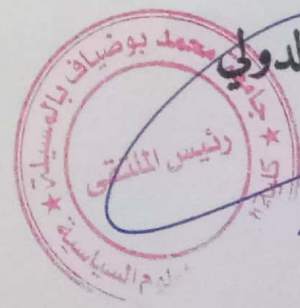 الدولي
جامعة محمد بوضياف بالمسيلة
رئيس الملتقى
السياسية